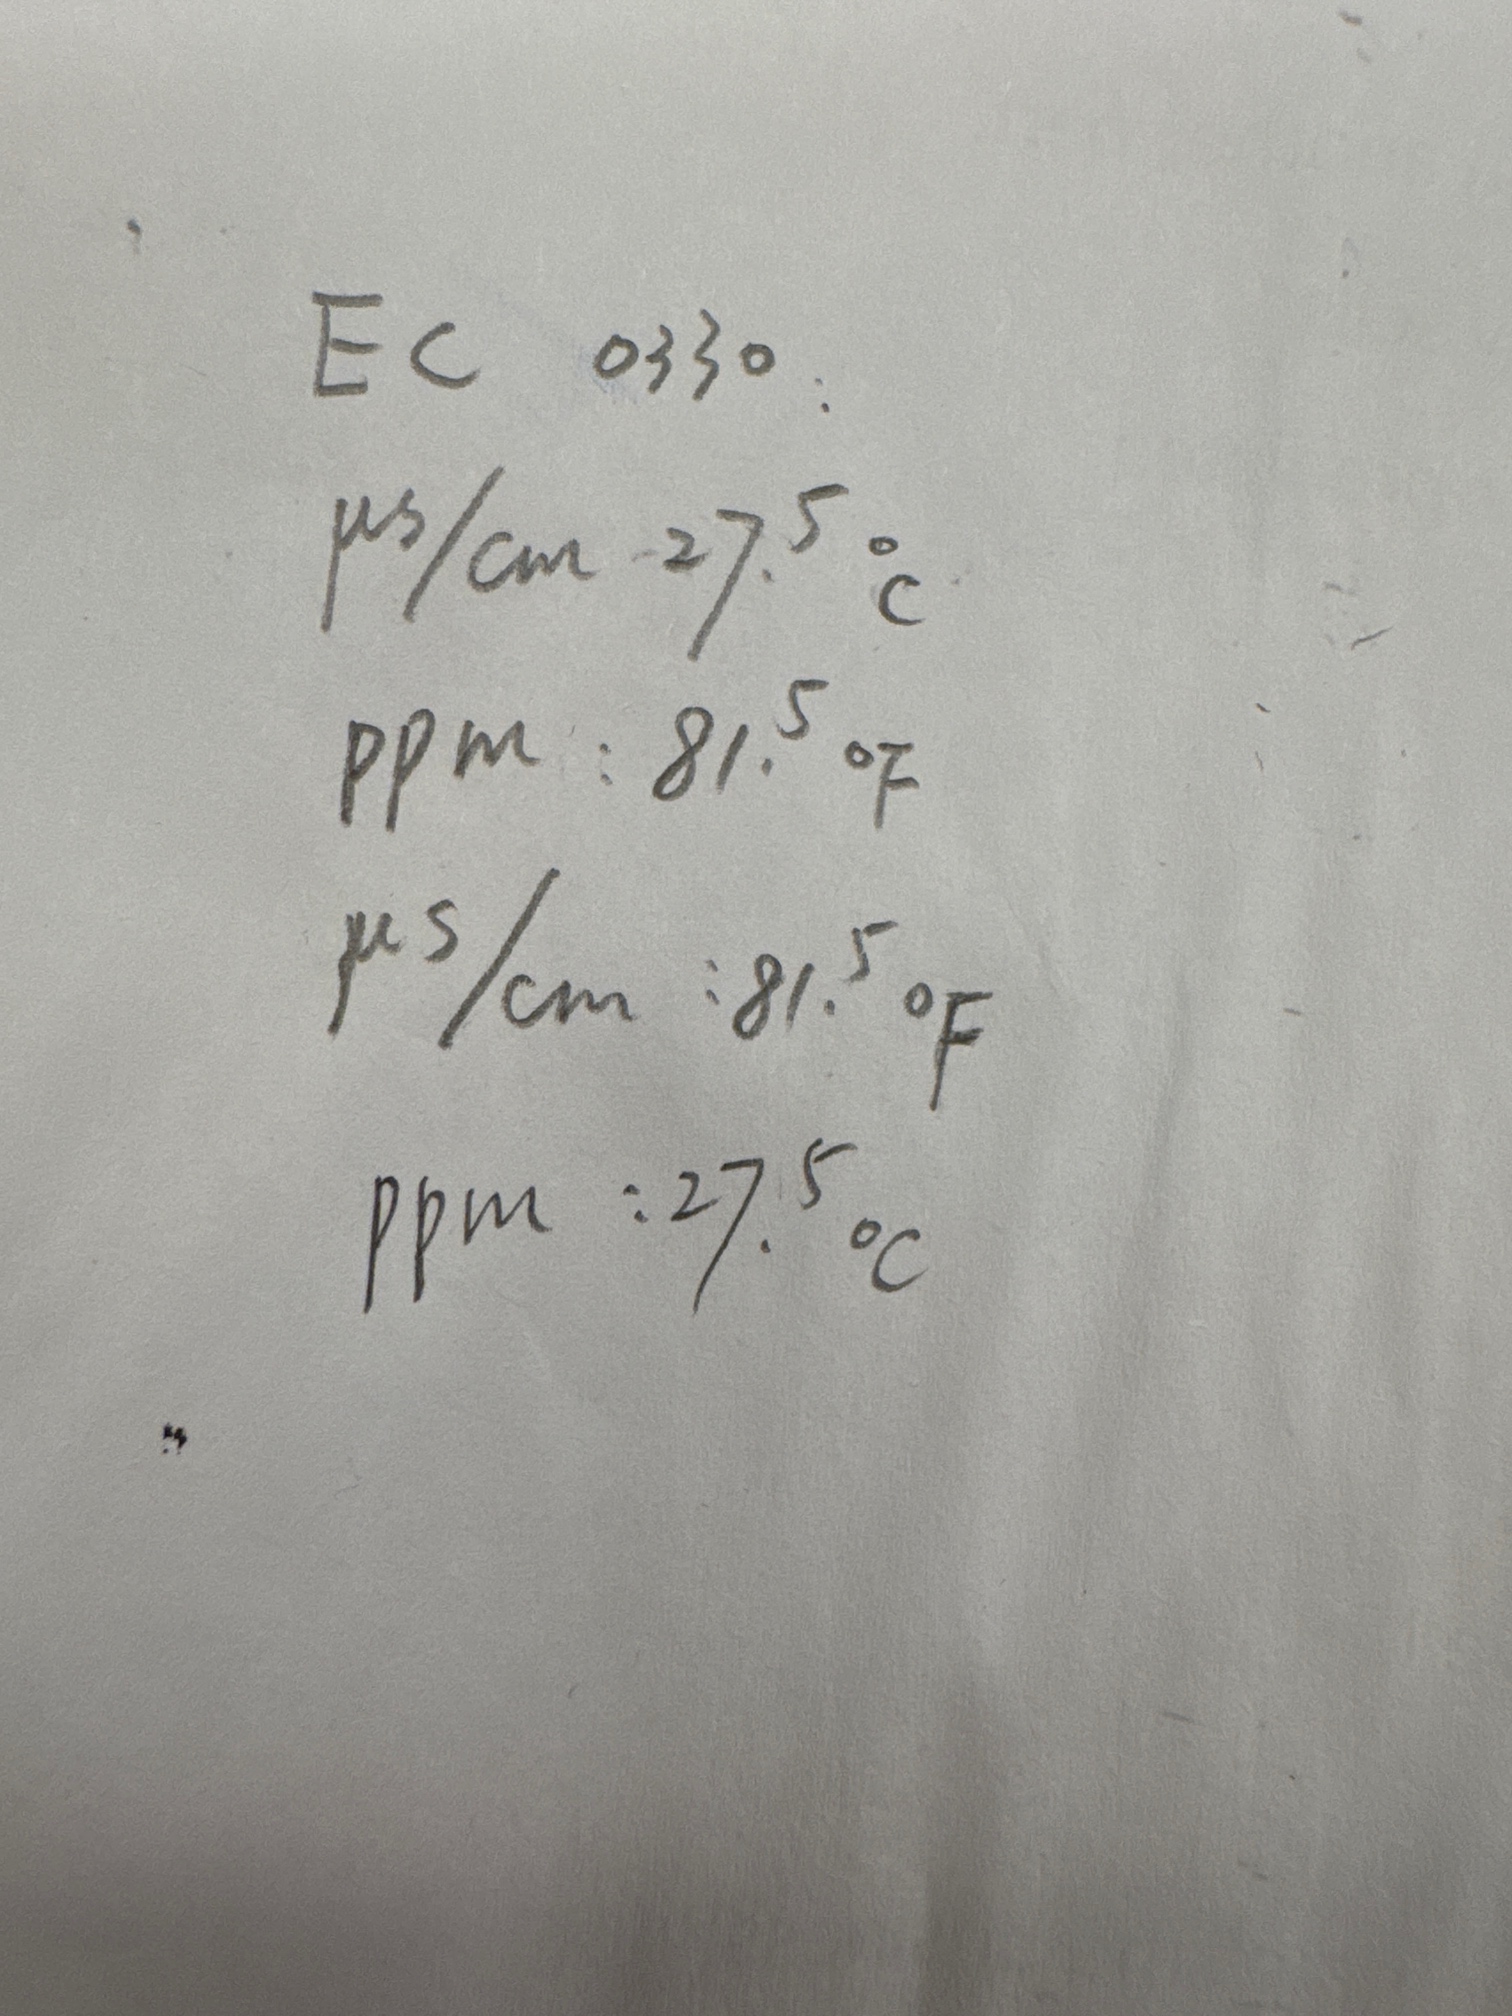 EC 0330:
μs/cm -27.5 °C
ppm : 81.5 °F
μs/cm : 81.5 °F
ppm : 27.5 °C